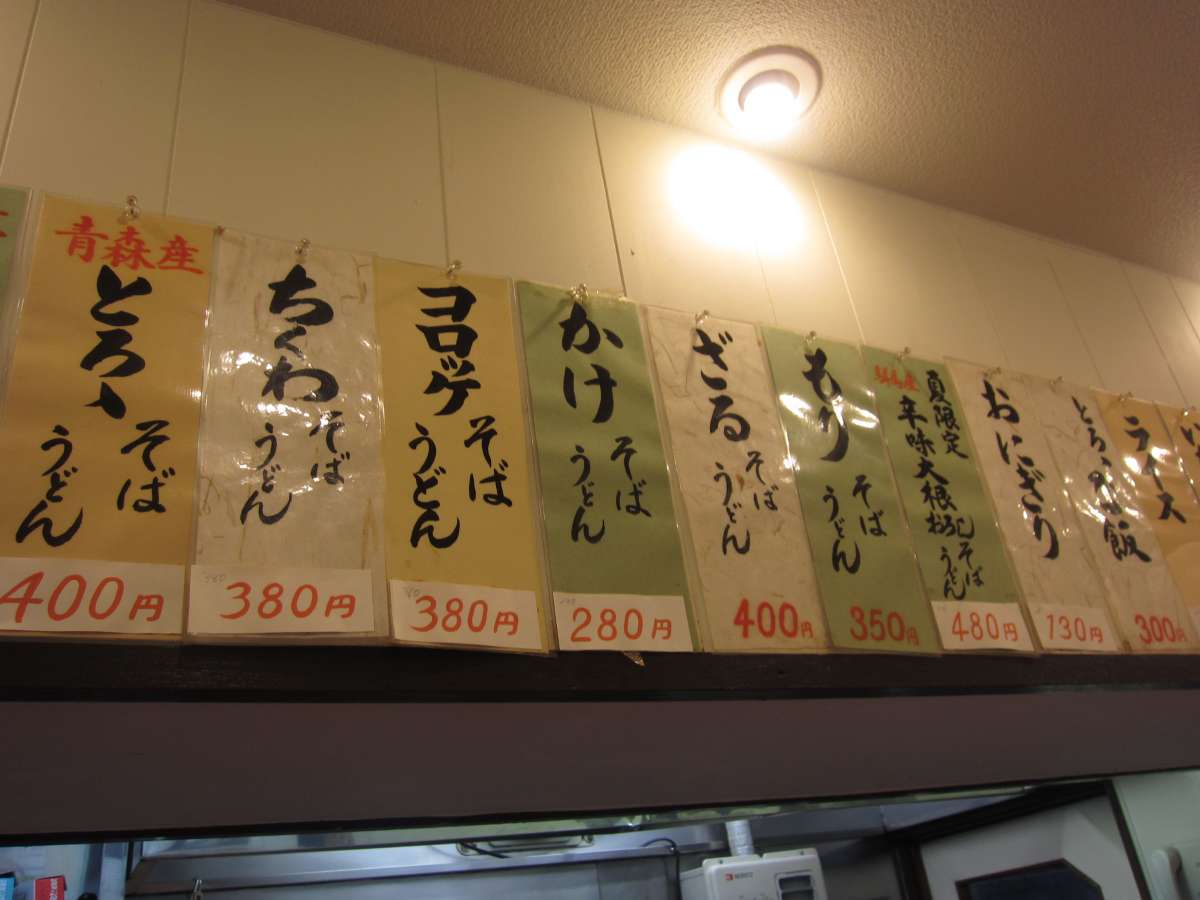 青森産
とろゝ
そば
うどん
400円
ちくわ
そば
うどん
380円
コロッケ
そば
うどん
380円
かけ
そば
うどん
280円
ざる
そば
うどん
400円
もり
そば
うどん
350円
夏限定
辛味大根おろし
そば
うどん
480円
おにぎり
130円
とろゝ飯
300円
ライス